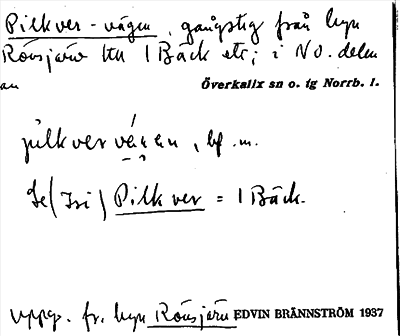 Pilkver-vägen, gångstig från byn
Rönsjärv till 1 Bäck etc; i NO. delen
av
Överkalix sn o. tg Norrb. l.
pilkver vá̱g̱ɛn, bf. m.
Se (Isi) Pilkver = 1 Bäck.
uppg. fr. byn Rönsjärv EDVIN BRÄNNSTRÖM 1937